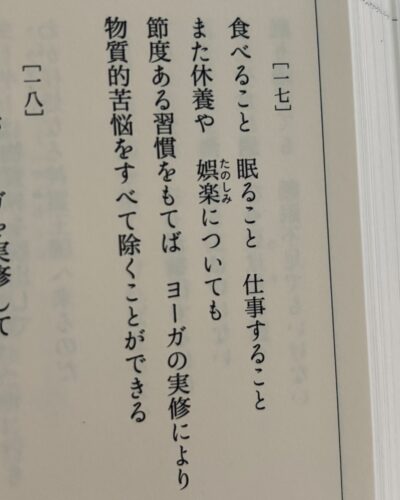 [一七]
食べること 眠ること 仕事すること
また休養や 娯楽についても
たのしみ
節度ある習慣をもてば ヨーガの実修により
物質的苦悩をすべて除くことができる
[一八]